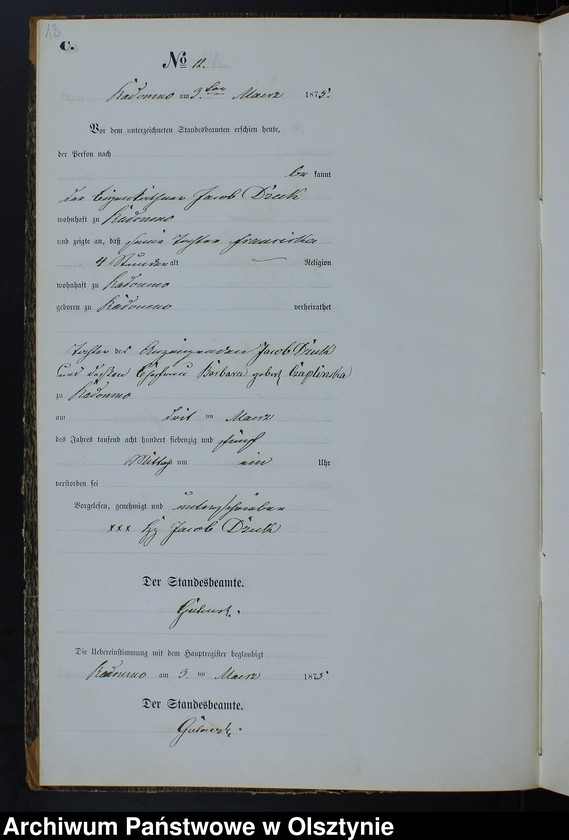 13
C.
No 12.
Radomno am 3. ten Maerz 1875.
Vor dem unterzeichneten Standesbeamten erschien heute,
der Person nach
be kannt
der Eigenkäthner Jacob Druk
wohnhaft zu Radomno
und zeigte an, daß seine Tochter
4 Stunden alt — Religion
wohnhaft zu Radomno
geboren zu Radomno verheirathet
Tochter des Anzeigenden Jacob Druk
und dessen Ehefrau Barbara gebor. Czaplinska
zu Radomno
am drit ten Maerz
des Jahres tausend acht hundert siebenzig und fünf
Mittag um ein Uhr
verstorben sei
Vorgelesen, genehmigt und unterschrieben
xxx Hz Jacob Druk
Der Standesbeamte.
Die Uebereinstimmung mit dem Hauptregister beglaubigt
Radomno am 3. ten Maerz 1875
Der Standesbeamte.
Archiwum Państwowe w Olsztynie